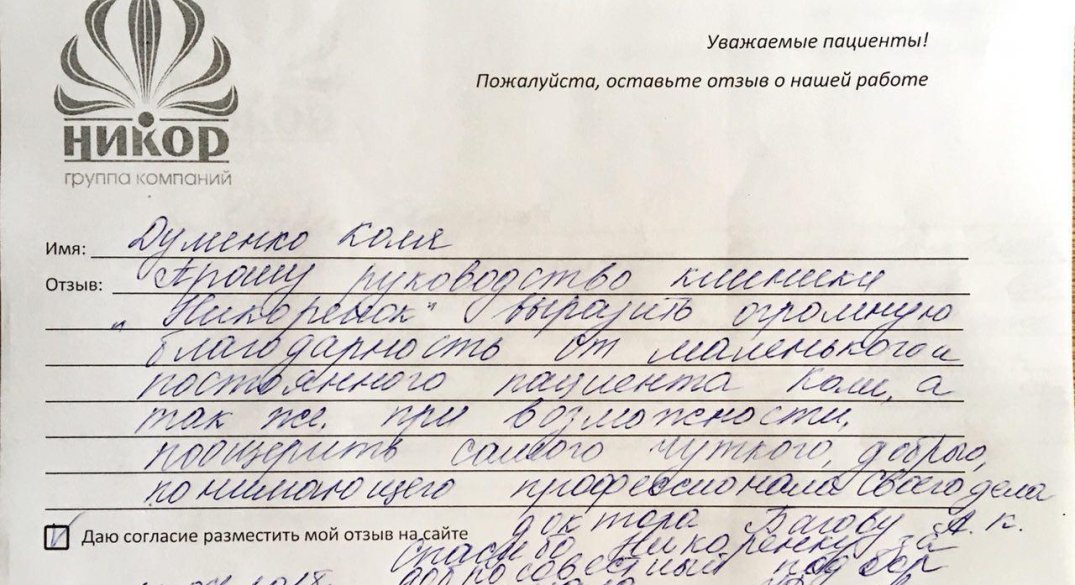 Уважаемые пациенты!
Пожалуйста, оставьте отзыв о нашей работе
НИКОР
группа компаний
Имя: Думенко Коля
Отзыв: Прошу руководство клиники
"Никоренок" выразить огромную
благодарность от маленького и
постоянного пациента Коли, а
так же, при возможности,
поощерить самого чуткого, доброго,
понимающего профессионала своего дела
доктора Багову А.К.
Даю согласие разместить мой отзыв на сайте
спасибо Никоренку за
добросовестный подбор